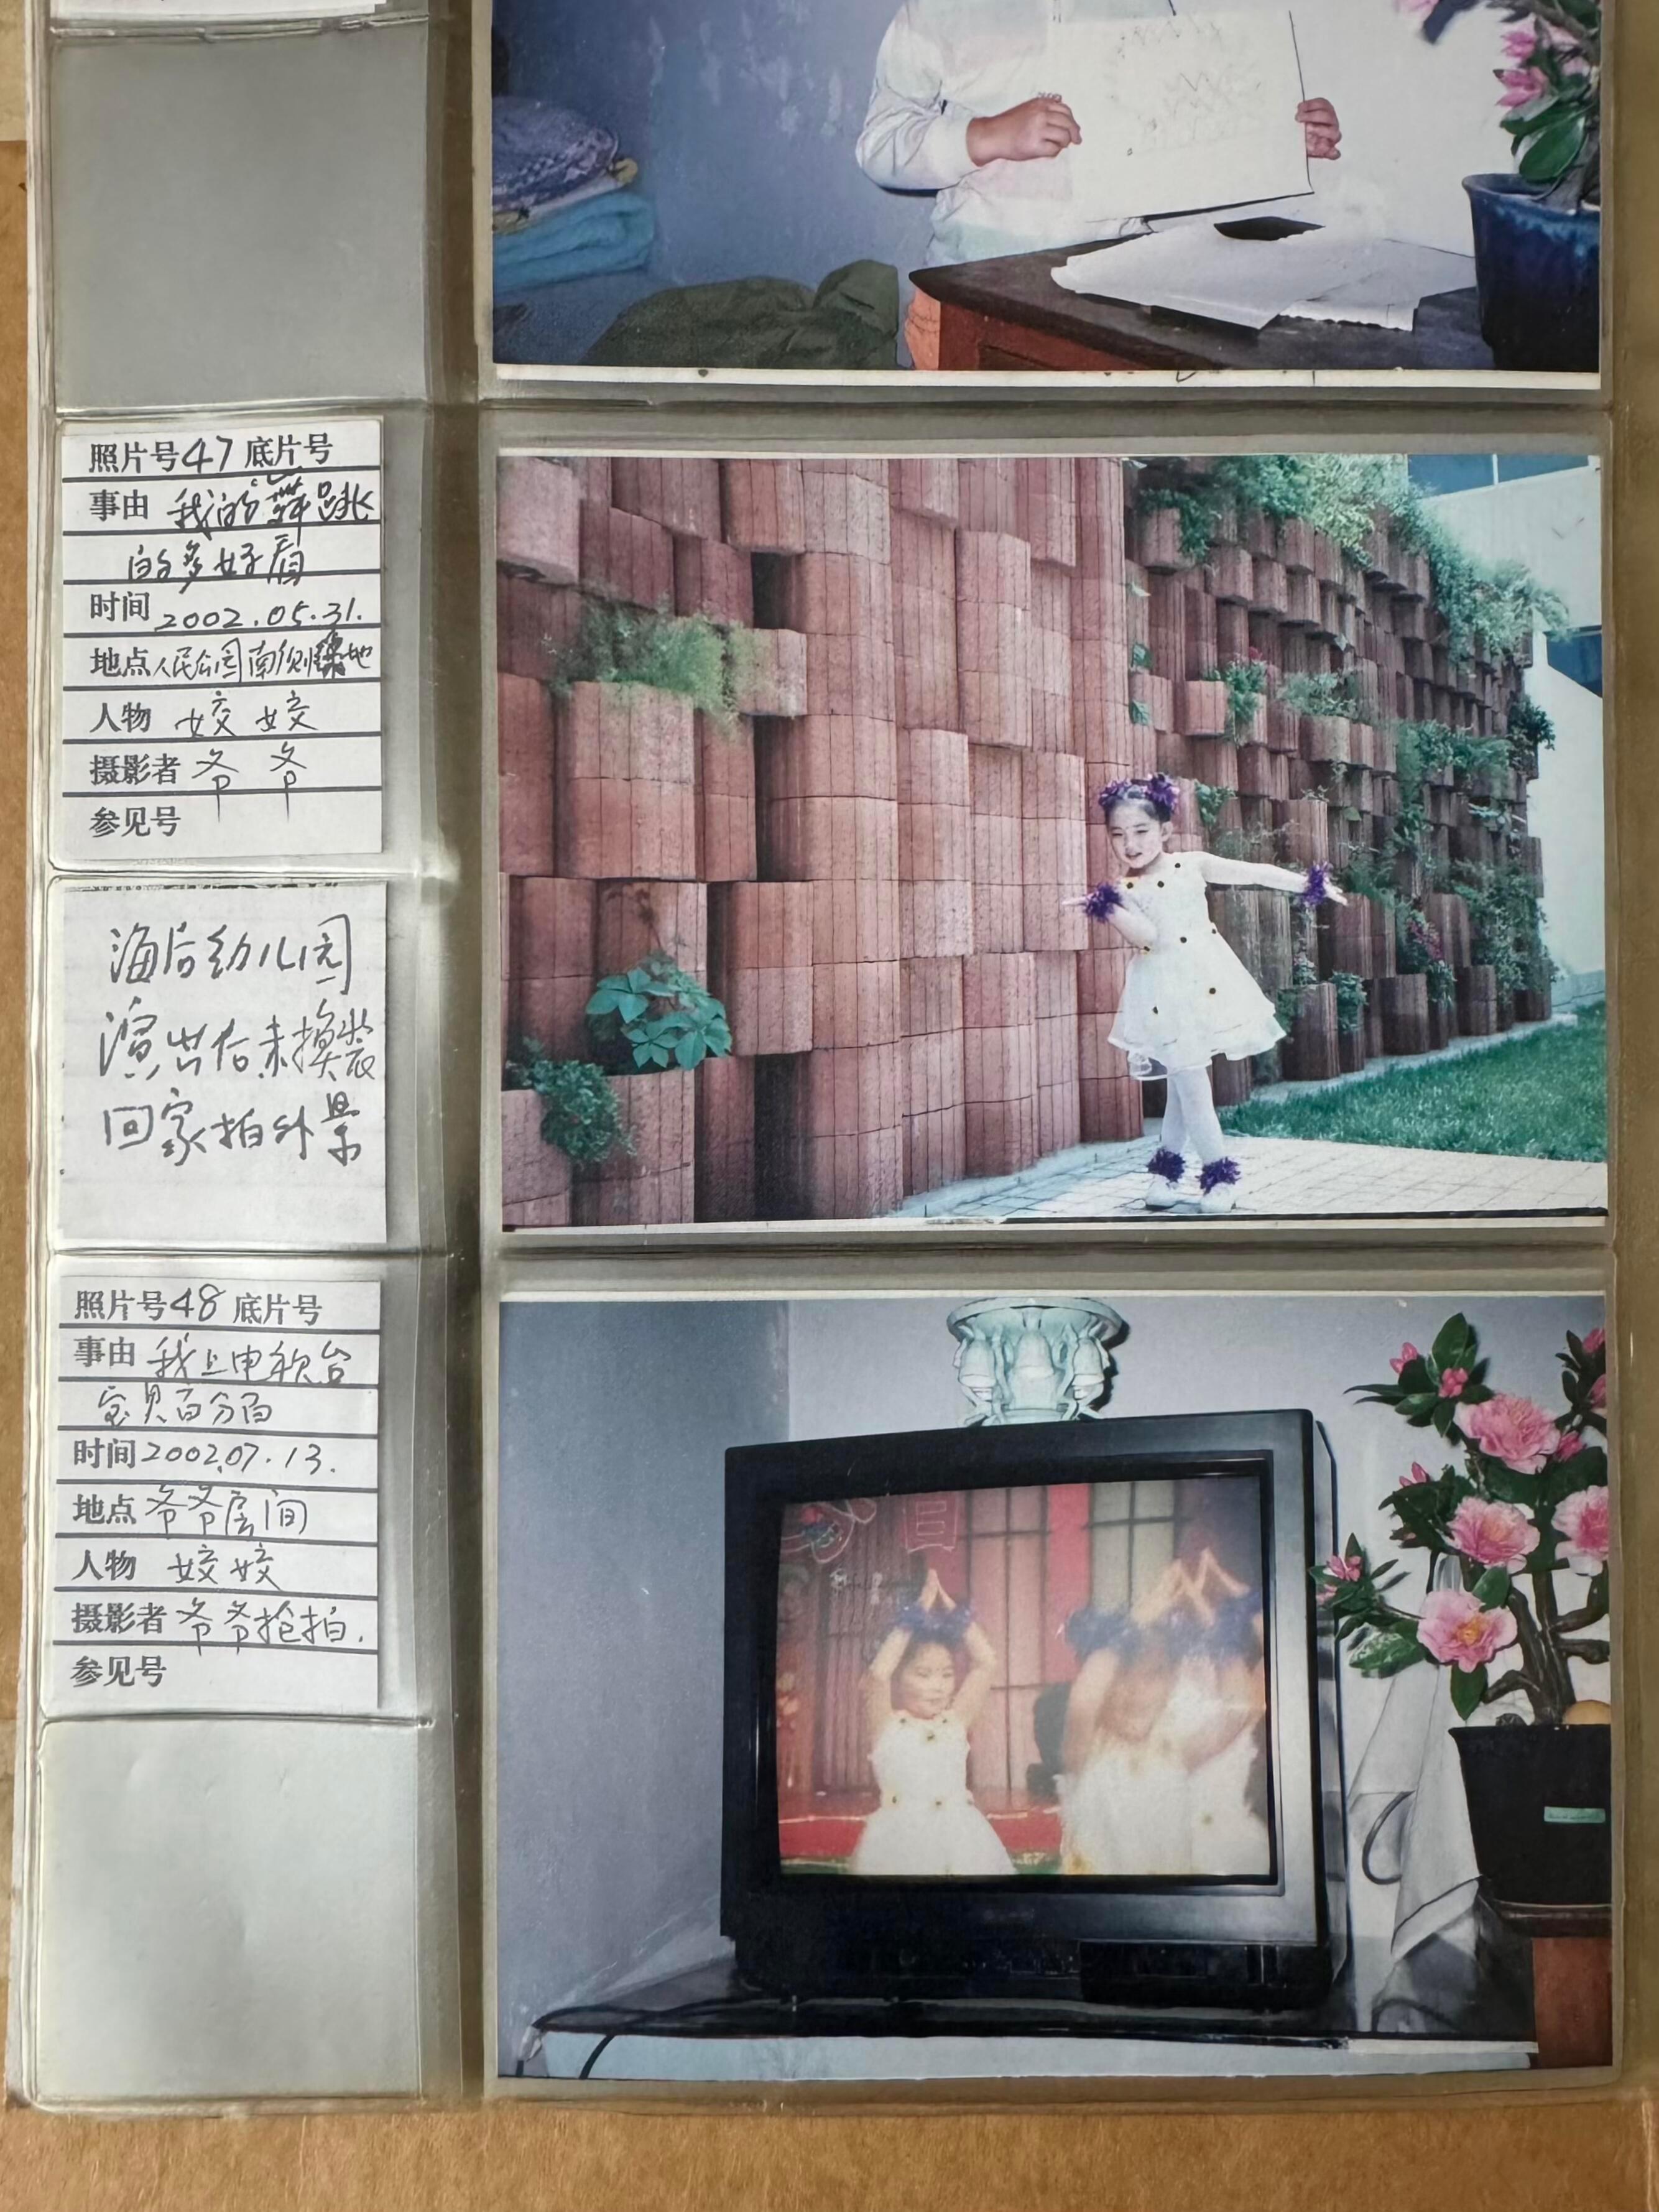 照片号47 底片号
事由 我的舞跳
的多好看
时间 2002.05.31.
地点 人民公园南侧绿地
人物 姣姣
摄影者 爷爷
参见号
海后幼儿园
演出后未换装
回家拍外景
照片号48 底片号
事由 我上电视台
宝贝百分百
时间 2002.07.13.
地点 爷爷房间
人物 姣姣
摄影者 爷爷抢拍.
参见号